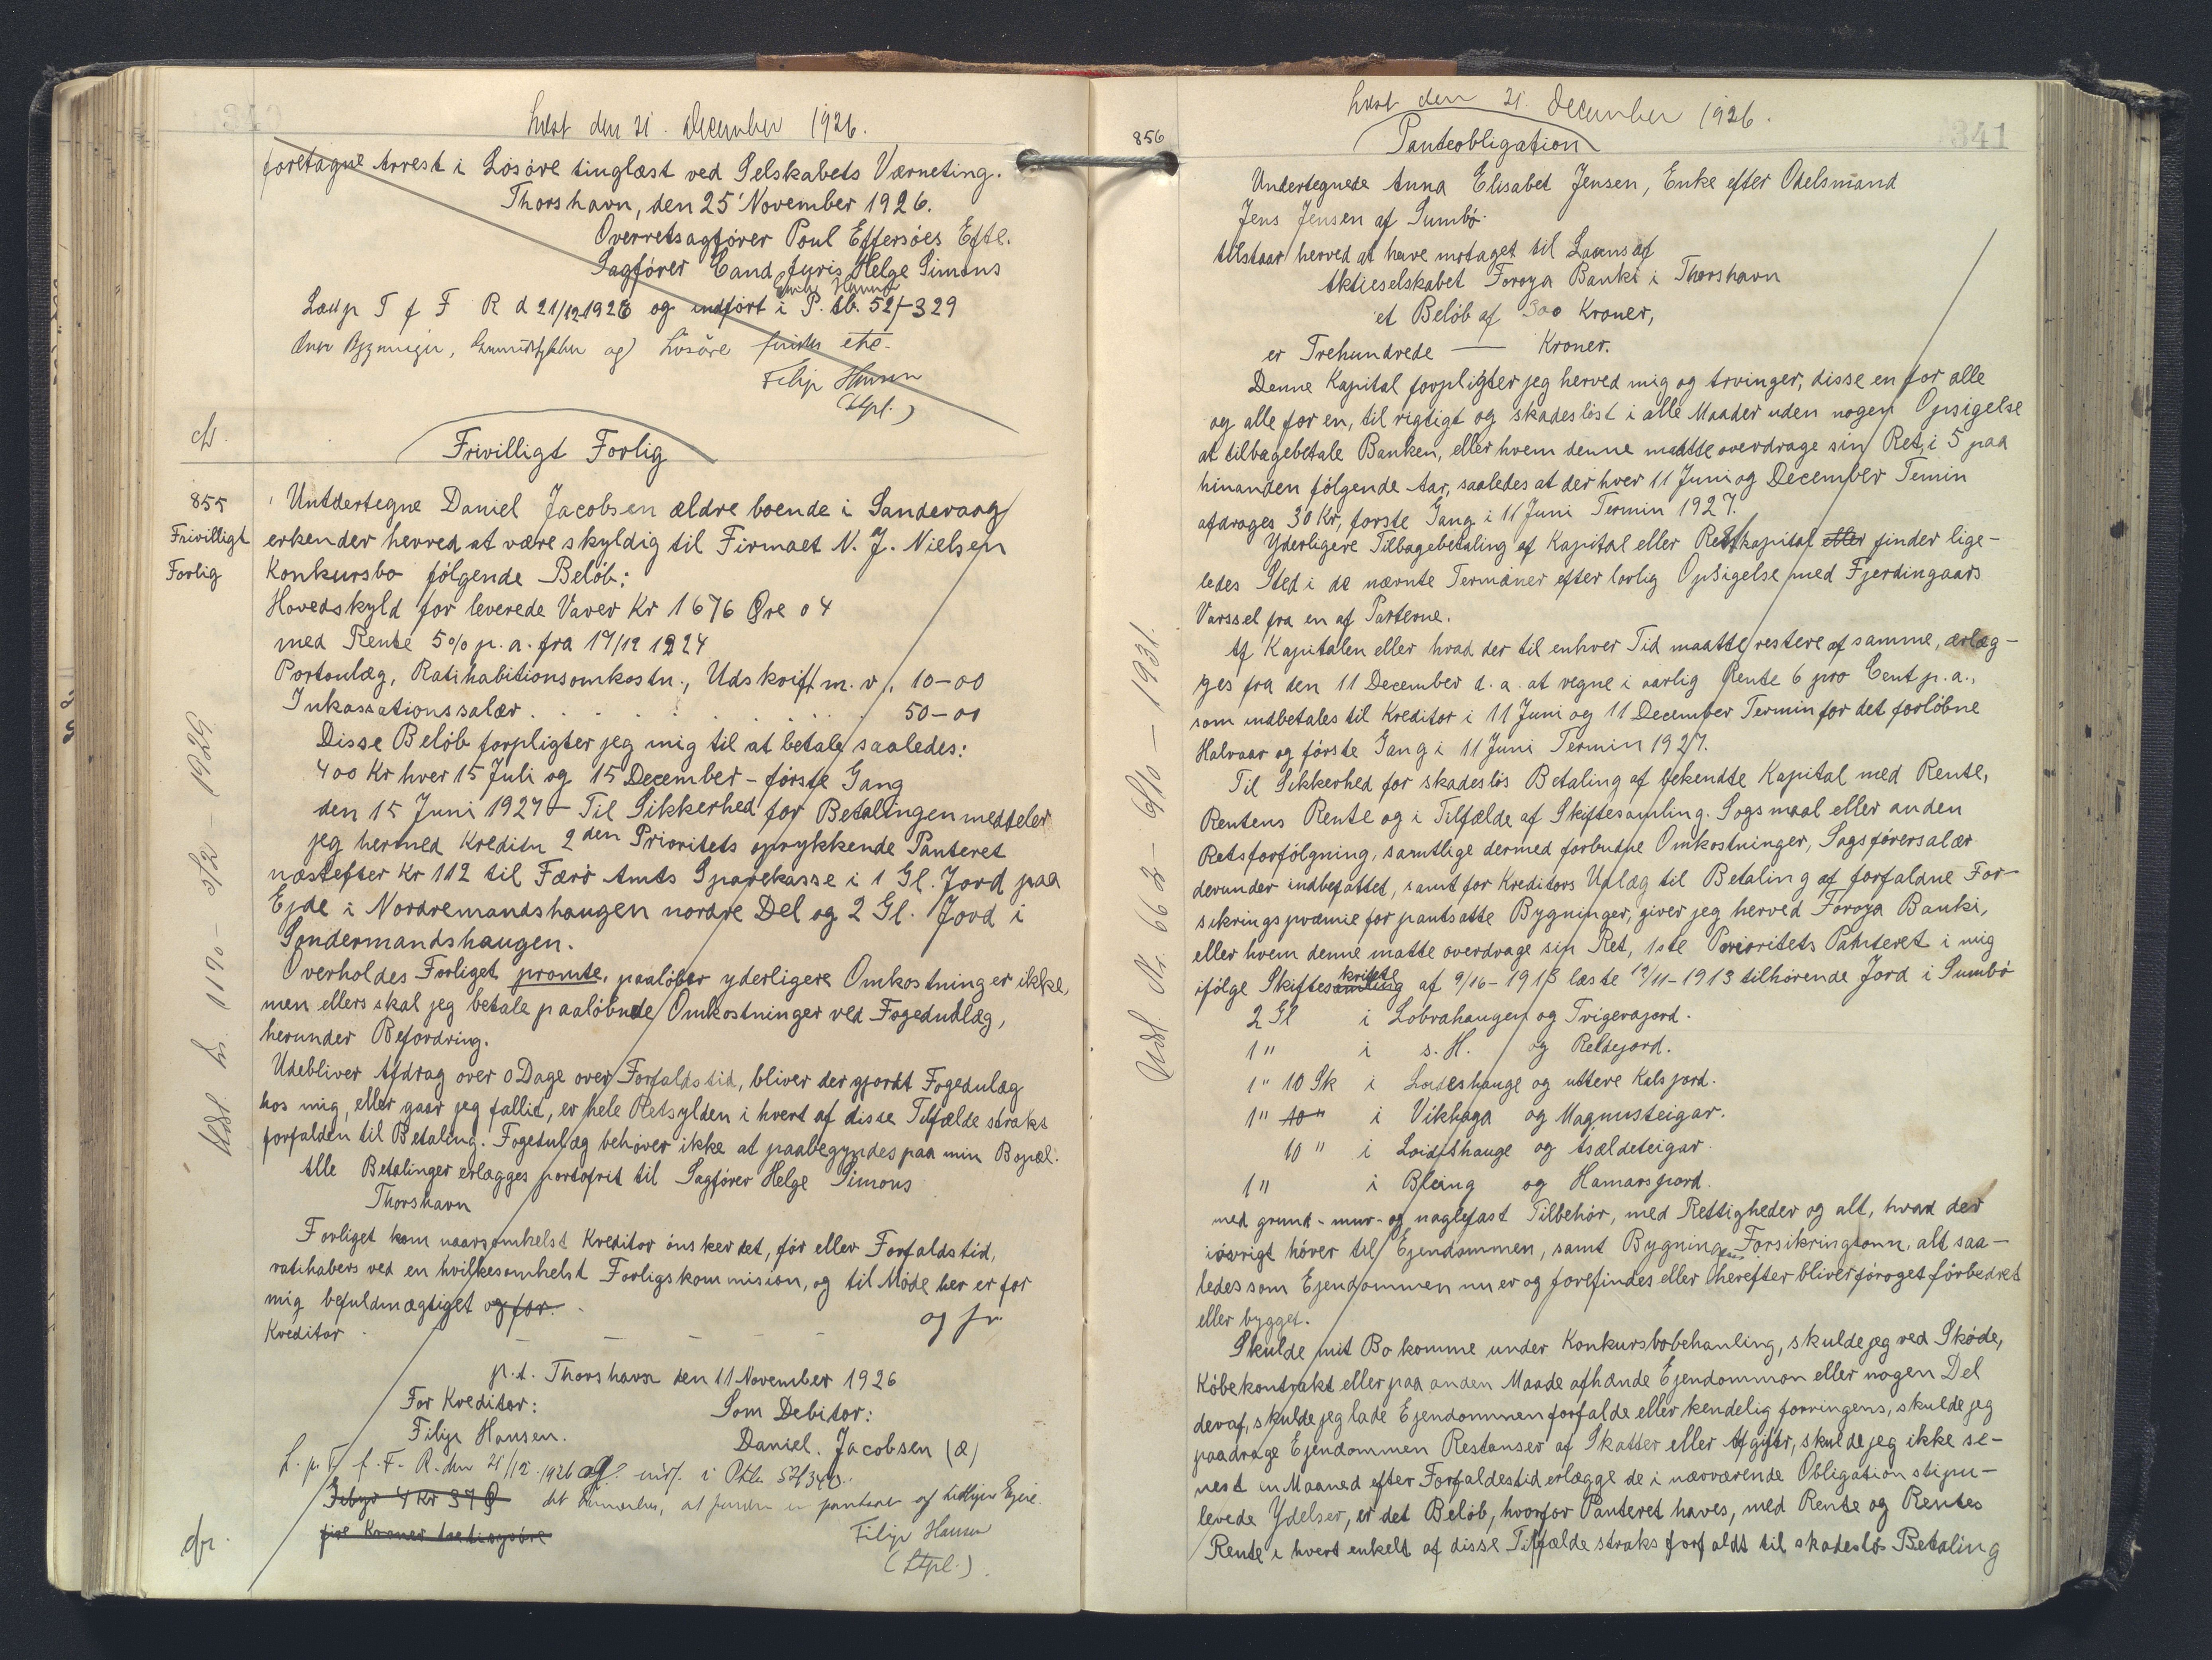 Læst den 21. December 1926.
foretagne Arrest i Løsøre tinglæst ved Selskabets Værneting.
Thorshavn, den 25 November 1926.
Overretsagfører Poul Effersøes Eftf.
Sagfører Cand juris Helge Simons
Læst p T f F R d 21/12 1926 og indført i P. tb. 52/-329
Bygninger, og Løsøre findes
Filip Hansen
(Stpl.)
Frivilligt Forlig
855
Frivilligt
Forlig
Untdertegne Daniel Jacobsen ældre boende i Sandevaag
erkender herved at være skyldig til Firmaet N. J. Nielsen
Konkursbo følgende Beløb:
Hovedskyld for leverede Varer Kr 1676 Øre 04
med Rente 5% p. a. fra 17/12 1924
Portoulæg, Ratihabitionsomkostn., Udskrift m. v. 10-00
Inkassationssalær . . . . . . . 50-00
Disse Beløb forpligter jeg mig til at betale saaledes:
400 Kr hver 15 Juli og 15 December - første Gang
den 15 Juni 1927 - Til Sikkerhed for Betalingen meddeler
jeg hermed Kreditor 2den Prioritets oprykkende Panteret
næstefter Kr 112 til Færø Amts Sparekasse i 1 Gl. Jord paa
Ejde i Nordremandshaugen nordre Del og 2 Gl. Jord i
Sondermandshaugen.
Overholdes Forliget promte, paaløber yderligere Omkostninger ikke,
men ellers skal jeg betale paaløbnede Omkostninger ved Fogedudlæg,
herunder Befordring.
Udebliver Afdrag over 0 Dage over Forfaldstid, bliver der gjordt Fogedulæg
hos mig, eller gaar jeg fallit, er hele Retsylden i hvert af disse Tilfælde straks
forfalden til Betaling. Fogedulæg behøver ikke at paabegyndes paa min Bopæl.
Alle Betalinger erlægges portofrit til Sagfører Helge Simons
Thorshavn
Forliget kam naarsomkelst Kreditor ønsker det, før eller Forfaldstid,
ratihabers ved en hvilkesomhelst Forligskommision, og til Møde her er for
mig befuldmægtiget og for.
og for
Kreditor
p. t. Thorshavn den 11 November 1926
For Kreditor:
Som Debitor:
Filip Hansen.
Daniel. Jacobsen (æ)
L. p. T. f. F. R. den 21/12 1926 og indf. i Ptb. 52/340.
Gebyr 4 Kr 37 Ø det bemærkes, at
fire Kroner
Filip Hansen
(Stpl.)
Udsl. Nr. 1170 - 5/2 - 1929
856
Læst den 21. December 1926.
341
Panteobligation
Undertegnede Anna Elisabet Jensen, Enke efter Odelsmand
Jens Jensen af Sumbø
tilstaar herved at have motaget til Laans af
Aktieselskabet Føroya Banki i Thorshavn
et Beløb af 300 Kroner,
er Trehundrede — Kroner.
Denne Kapital forpligter jeg herved mig og Arvinger, disse en for alle
og alle for en, til rigtigt og skadesløst i alle Maader uden nogen Opsigelse
at tilbagebetale Banken, eller hvem denne maatte overdrage sin Ret, i 5 paa
hinanden følgende Aar, saaledes at der hver 11 Juni og December Temin
afdrages 30 Kr, første Gang i 11 Juni Termin 1927.
Yderligere Tilbagebetaling af Kapital eller Restkapital eller finder lige-
ledes Sted i de nævnte Terminer efter lovlig Opsigelse med Fjerdingaars
Varssel fra en af Parterne.
Af Kapitalen eller hvad der til enhver Tid maatte restere af samme, ærlæg-
ges fra den 11 December d. a. at regne i aarlig Rente 6 pro Cent p. a.,
som indbetales til Kreditor i 11 Juni og 11 December Termin for det forløbne
Halvaar og første Gang i 11 Juni Termin 1927.
Til Sikkerhed for skadesløs Betaling af bekendte Kapital med Rente,
Rentens Rente og i Tilfælde af Skiftesamling. Søgsmaal eller anden
Retsforfølgning, samtlige dermed forbudne Omkostninger, Sagsførersalær
derunder indbefattet, samt for Kreditors Udlæg til Betaling af forfaldne For-
sikringspræmie for pantsatte Bygninger, giver jeg herved Føroya Banki,
eller hvem denne matte overdrage sin Ret, 1ste Prioritets Panteret i mig
ifølge Skiftesamling af 9/10-1913 læste 12/11-1913 tilhørende Jord i Sumbø
2 Gl i Lobrahaugen og Trigerajord.
1 " i s. H. og Reldejord.
1 " 10 Sk i Loideshauge og uttere Kalsjord.
1 " 10 " i Vikhaga og Magnusteigar.
10 " i Loidishauge og tsældeteigar.
1 " i Bleing og Hamarsjord.
med grund- mur- og naglefast Tilbehør, med Rettigheder og alt, hvad der
iøvrigt hører til Ejendommen, samt Bygningens Forsikringsum, alt saa-
ledes som Ejendommen nu er og forefindes eller herefter bliver foroget forbedret
eller bygget.
Skulde mit Bo komme under Konkursbobehanling, skulde jeg ved Skøde,
Købekontrakt eller paa anden Maade afhænde Ejendommen eller nogen Del
deraf, skulde jeg lade Ejendommen forfalde eller kendelig forringens, skulde jeg
paadrage Ejendommen Restanser af Skatter eller Afgifter, skulde jeg ikke se-
nest en Maaned efter Forfaldestid erlægge de i nærværende Obligation stipu-
lerede Ydelser, er det Beløb, hvorfor Panteret haves, med Rente og Rentes
Rente i hvert enkelt af disse Tilfælde straks forfaldt til skadesløs Betaling
Udsl. Nr. 662 - 6/10 - 1931.